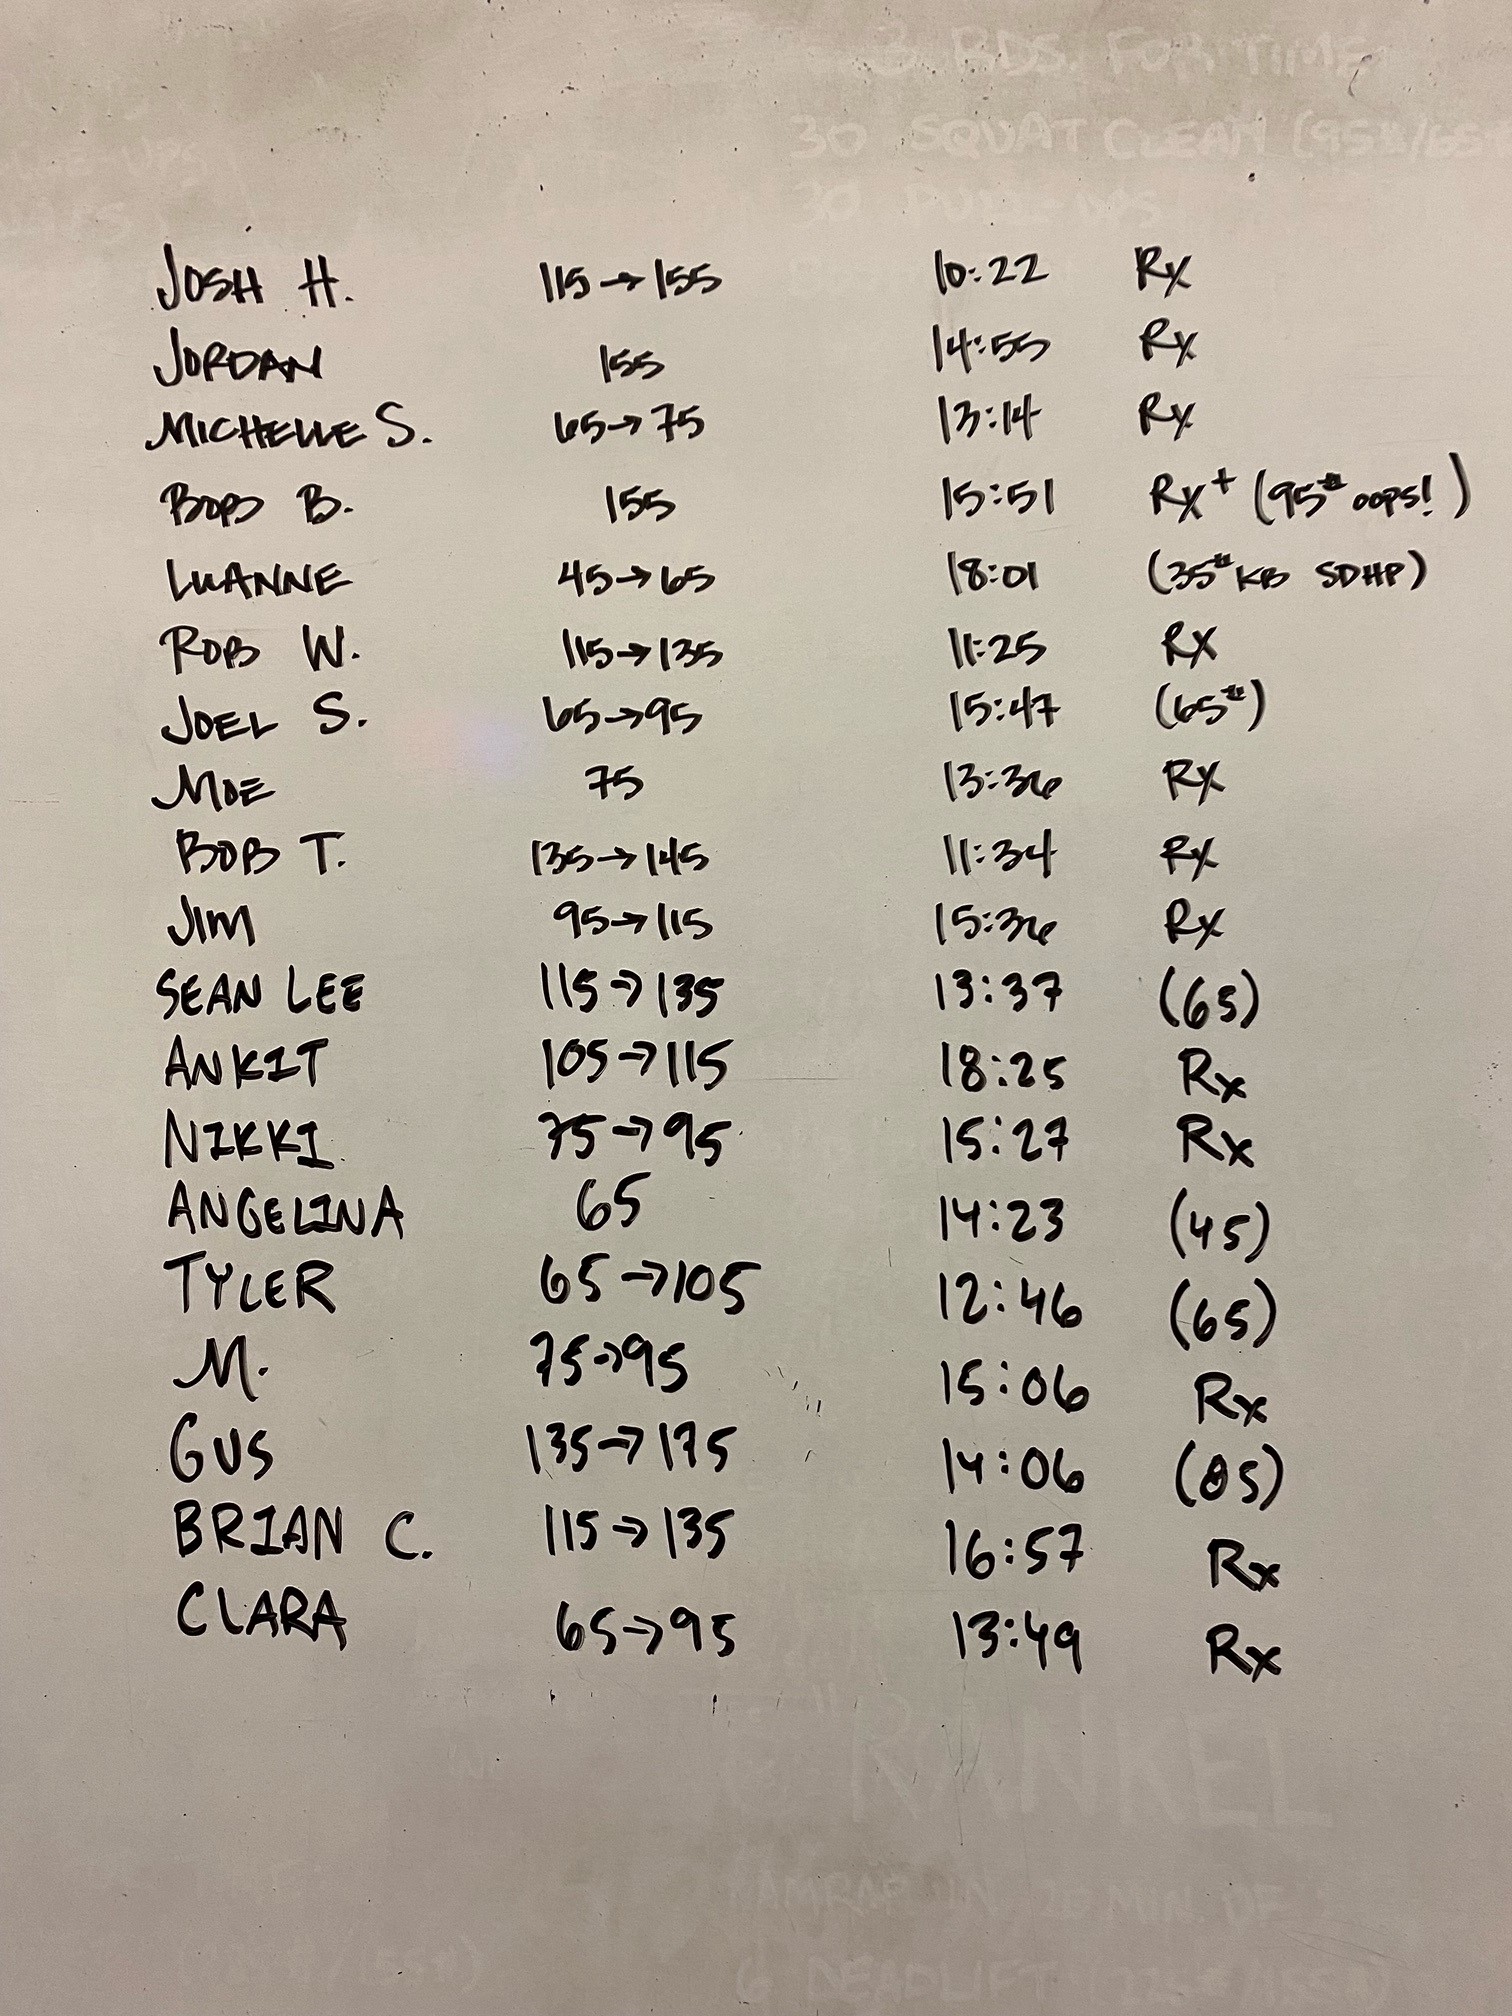 3 RDS. FOR TIME
30 SQUAT CLEAN (95#/65
30 PULL-UPS
JOSH H. 115→155 10:22 Rx
JORDAN 155 14:55 Rx
MICHELLE S. 65→75 13:14 Rx
BOB B. 155 15:51 Rx+ (95# oops!)
LUANNE 45→65 18:01 (35# KB SDHP)
ROB W. 115→135 11:25 RX
JOEL S. 65→95 15:47 (65#)
MOE 75 13:36 RX
BOB T. 135→145 11:34 RX
JIM 95→115 15:36 Rx
SEAN LEE 115→135 13:37 (65)
ANKIT 105→115 18:25 Rx
NIKKI 75→95 15:27 Rx
ANGELINA 65 14:23 (45)
TYLER 65→105 12:46 (65)
M. 75→95 15:06 Rx
GUS 135→175 14:06 (85)
BRIAN C. 115→135 16:57 Rx
CLARA 65→95 13:49 Rx
RANKEL
AMRAP IN 20 MIN. OF
6 DEADLIFT